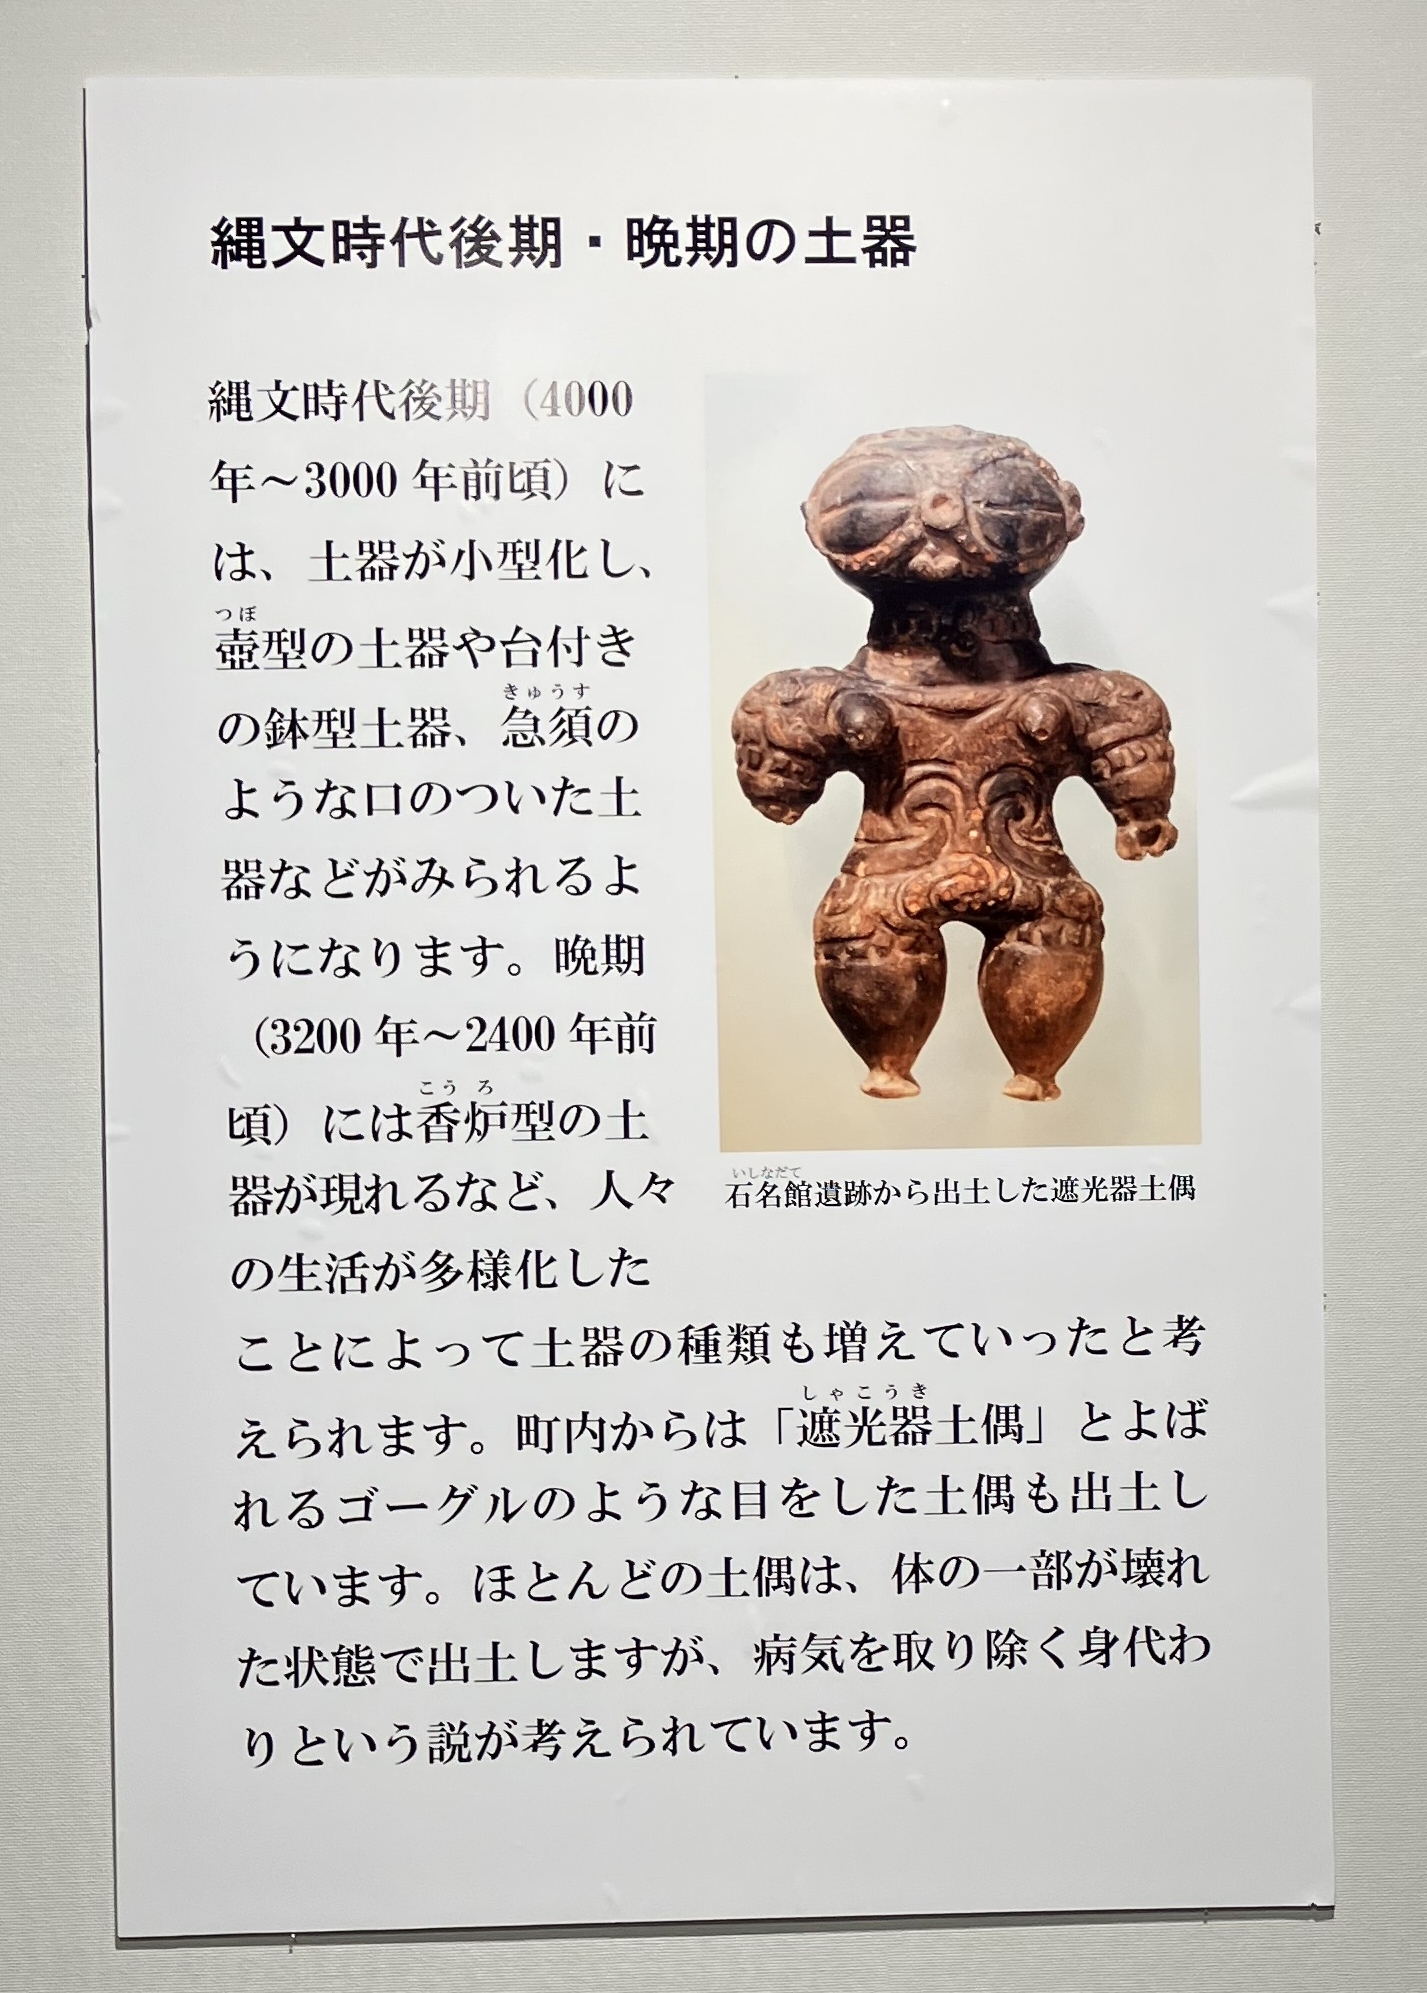 縄文時代後期・晩期の土器
縄文時代後期（4000
年～3000 年前頃）に
は、土器が小型化し、
つぼ
壺型の土器や台付き
きゅうす
の鉢型土器、急須の
ような口のついた土
器などがみられるよ
うになります。晩期
（3200 年～2400 年前
こうろ
頃）には香炉型の土
器が現れるなど、人々
の生活が多様化した
ことによって土器の種類も増えていったと考
しゃこうき
えられます。町内からは「遮光器土偶」とよば
れるゴーグルのような目をした土偶も出土し
ています。ほとんどの土偶は、体の一部が壊れ
た状態で出土しますが、病気を取り除く身代わ
りという説が考えられています。
いしなだて
石名館遺跡から出土した遮光器土偶